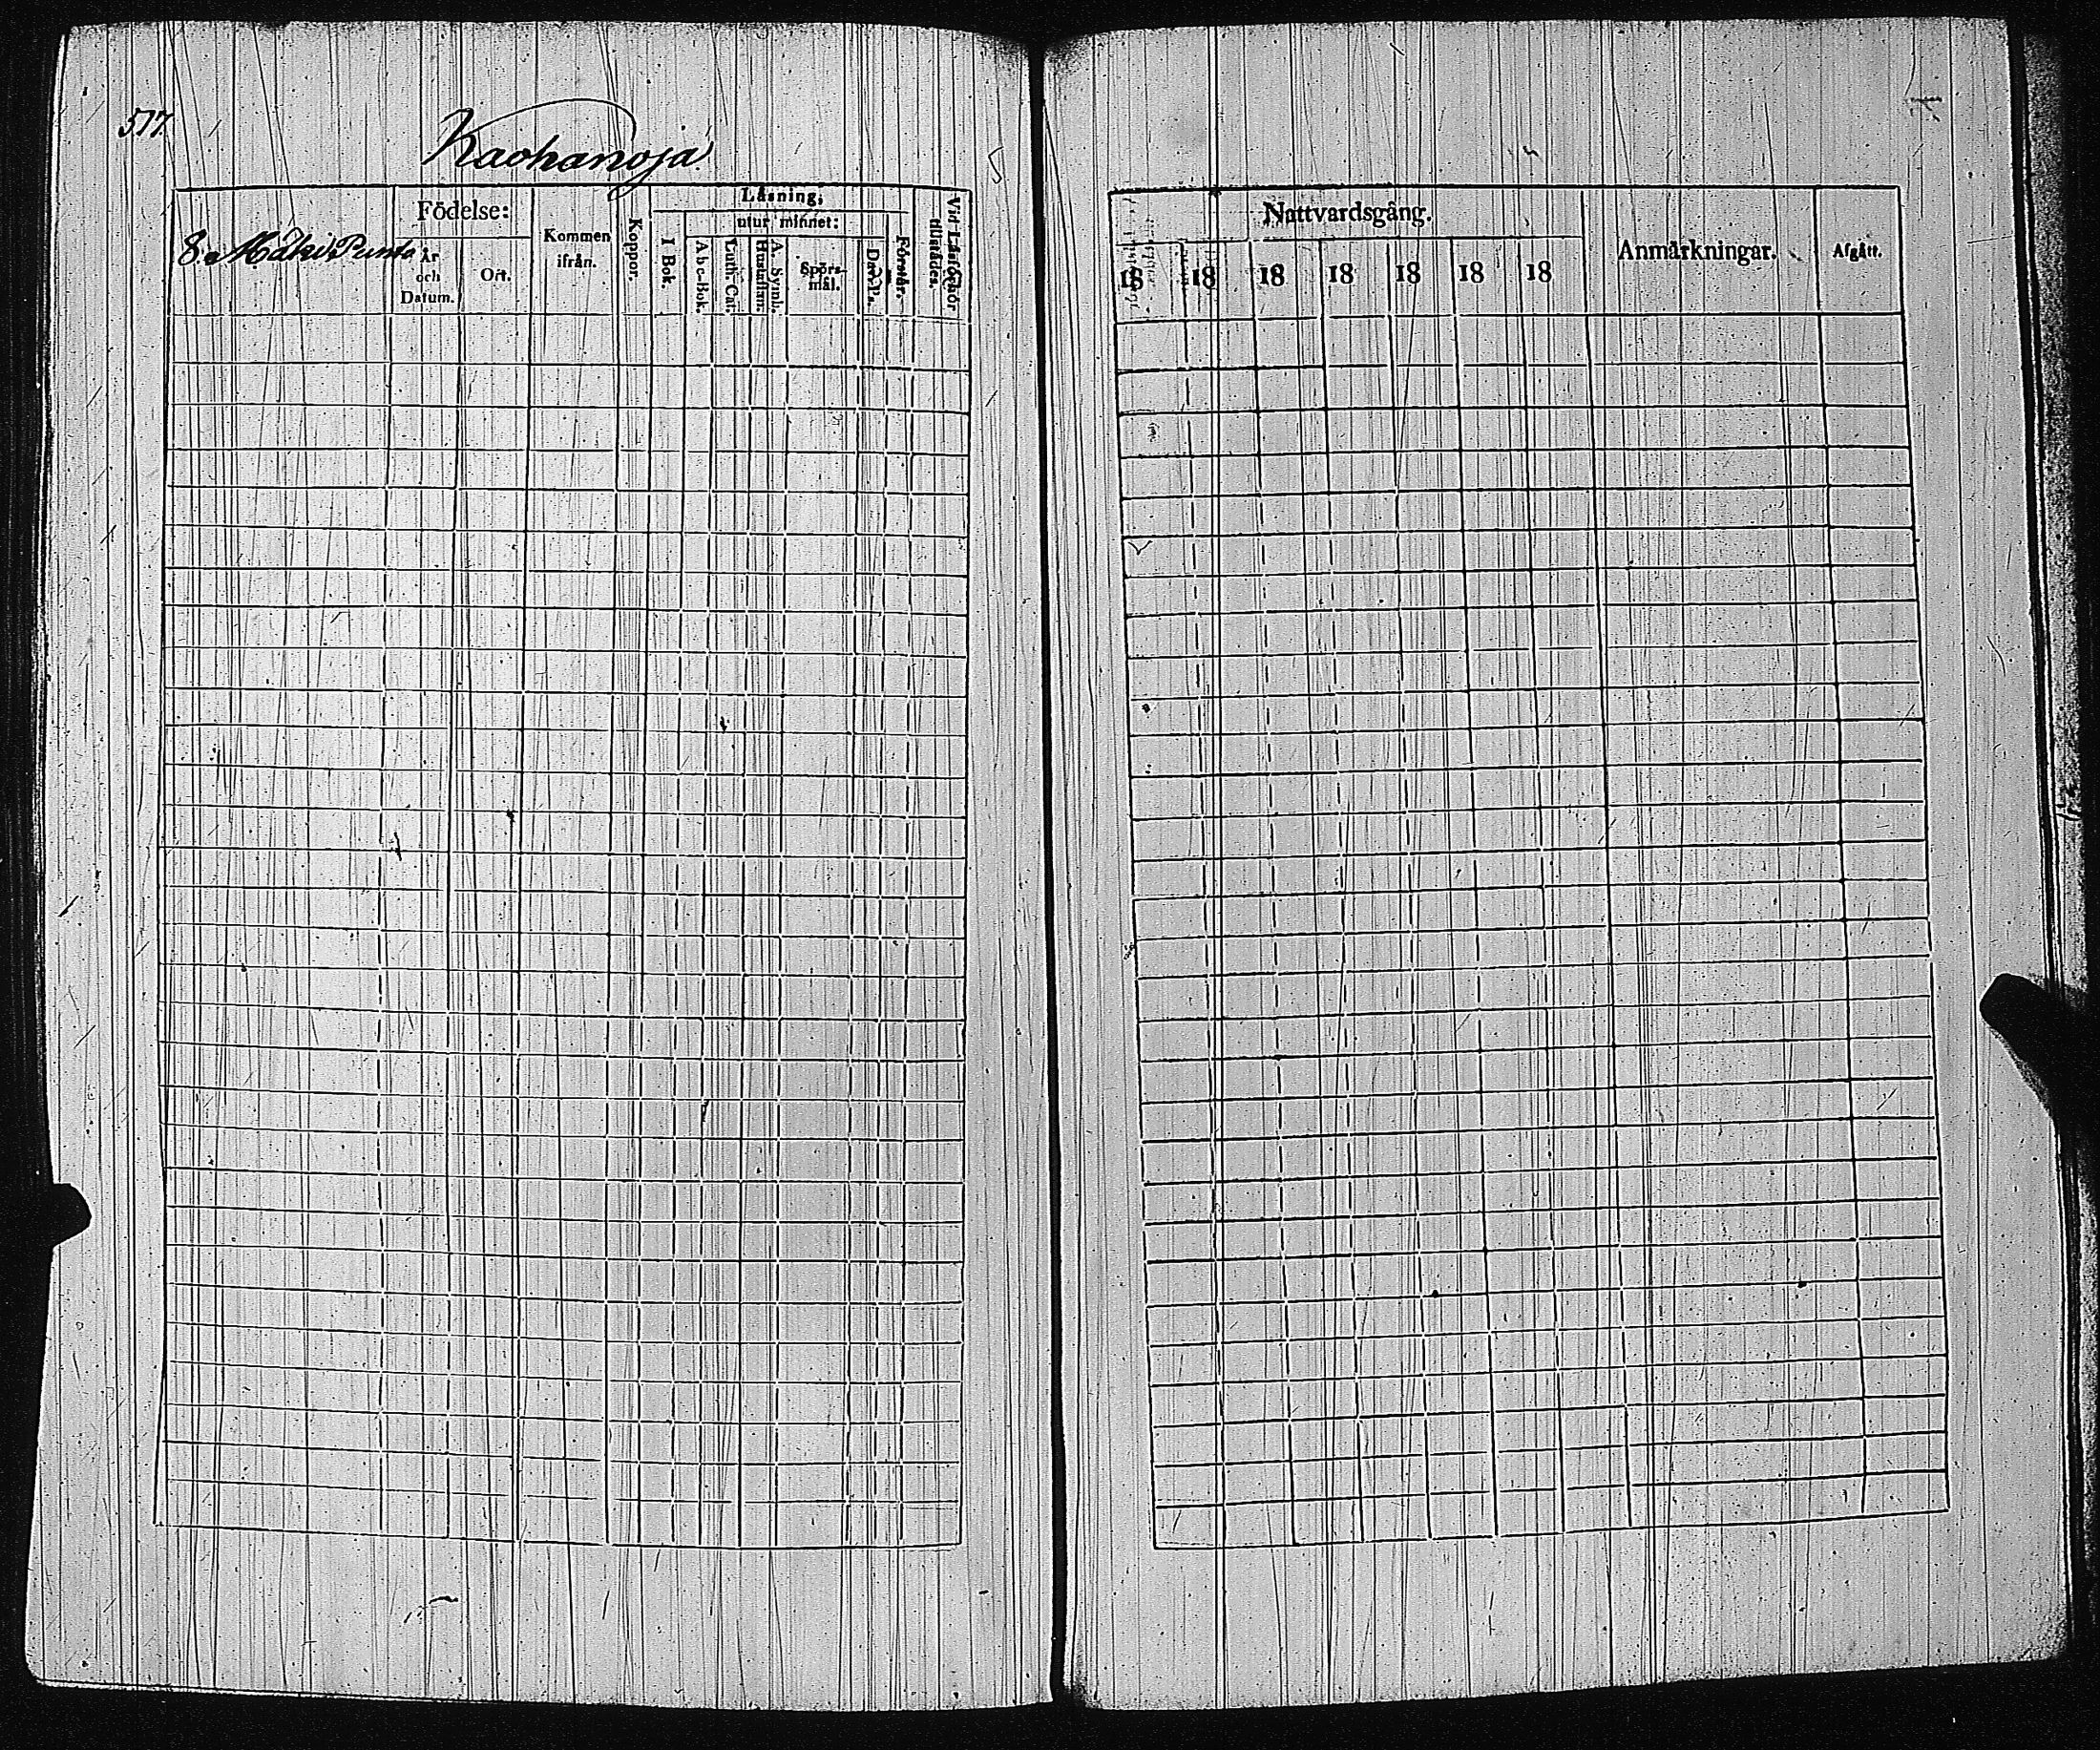 577.
Kaohanoja
8. Mäki Punta
Födelse:
År och Datum.
Ort.
Kommen ifrån.
Koppor.
Läsning,
utur minnet:
I Bok.
Abc-Bok.
Luth. Cat.
Hustaflan.
A. Symb.
Spörs-mål.
Dav. Ps.
Förstår.
Vid Läsförhör tillstädes.
Nattvardsgång.
18 18 18 18 18 18 18
Anmärkningar.
Afgått.